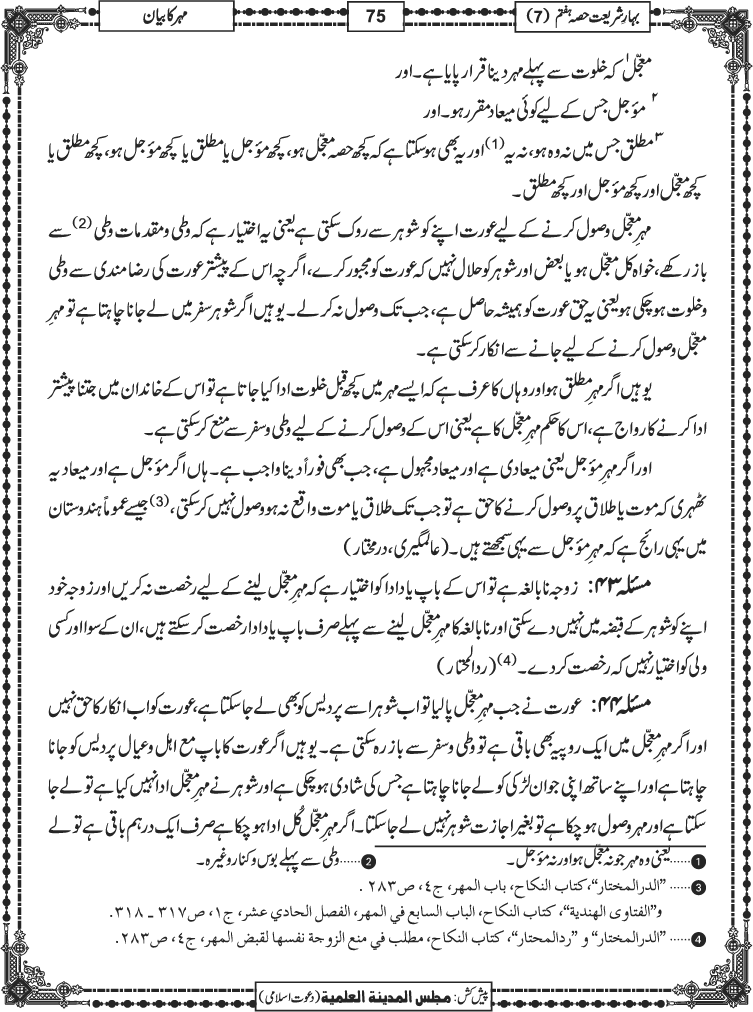 بہارِ شریعت حصہ ہفتم (7)
75
مہر کا بیان
۱ معجّل کہ خلوت سے پہلے مہر دینا قرار پایا ہے۔ اور
۲ مؤجل جس کے لیے کوئی میعاد مقرر ہو۔ اور
۳ مطلق جس میں نہ وہ ہو، نہ یہ (1) اور یہ بھی ہو سکتا ہے کہ کچھ حصہ معجّل ہو، کچھ مؤجل یا مطلق یا کچھ مؤجل ہو، کچھ مطلق یا
کچھ معجّل اور کچھ مؤجل اور کچھ مطلق۔
مہرِ معجّل وصول کرنے کے لیے عورت اپنے کو شوہر سے روک سکتی ہے یعنی یہ اختیار ہے کہ وطی و مقدمات وطی (2) سے
باز رکھے، خواہ کل معجّل ہو یا بعض اور شوہر کو حلال نہیں کہ عورت کو مجبور کرے، اگرچہ اس کے پیشتر عورت کی رضا مندی سے وطی
و خلوت ہو چکی ہو یعنی یہ حق عورت کو ہمیشہ حاصل ہے، جب تک وصول نہ کر لے۔ یوہیں اگر شوہر سفر میں لے جانا چاہتا ہے تو مہرِ
معجّل وصول کرنے کے لیے جانے سے انکار کر سکتی ہے۔
یوہیں اگر مہرِ مطلق ہو اور وہاں کا عرف ہے کہ ایسے مہر میں کچھ قبل خلوت ادا کیا جاتا ہے تو اس کے خاندان میں جتنا پیشتر
ادا کرنے کا رواج ہے، اس کا حکم مہرِ معجّل کا ہے یعنی اس کے وصول کرنے کے لیے وطی و سفر سے منع کر سکتی ہے۔
اور اگر مہرِ مؤجل یعنی میعادی ہے اور میعاد مجہول ہے، جب بھی فوراً دینا واجب ہے۔ ہاں اگر مؤجل ہے اور میعاد یہ
ٹھہری کہ موت یا طلاق پر وصول کرنے کا حق ہے تو جب تک طلاق یا موت واقع نہ ہو وصول نہیں کر سکتی، (3) جیسے عموماً ہندوستان
میں یہی رائج ہے کہ مہرِ مؤجل سے یہی سمجھتے ہیں۔ (عالمگیری، درمختار)
مسئلہ ۴۳: زوجہ نابالغہ ہے تو اس کے باپ یا دادا کو اختیار ہے کہ مہرِ معجّل لینے کے لیے رخصت نہ کریں اور زوجہ خود
اپنے کو شوہر کے قبضہ میں نہیں دے سکتی اور نابالغہ کا مہرِ معجّل لینے سے پہلے صرف باپ یا دادا رخصت کر سکتے ہیں، ان کے سوا اور کسی
ولی کو اختیار نہیں کہ رخصت کر دے۔ (4) (ردالمحتار)
مسئلہ ۴۴: عورت نے جب مہرِ معجّل پا لیا تو اب شوہر اسے پردیس کو بھی لے جا سکتا ہے، عورت کو اب انکار کا حق نہیں
اور اگر مہرِ معجّل میں ایک روپیہ بھی باقی ہے تو وطی و سفر سے باز رہ سکتی ہے۔ یوہیں اگر عورت کا باپ مع اہل و عیال پردیس کو جانا
چاہتا ہے اور اپنے ساتھ اپنی جوان لڑکی کو لے جانا چاہتا ہے جس کی شادی ہو چکی ہے اور شوہر نے مہرِ معجّل ادا نہیں کیا ہے تو لے جا
سکتا ہے اور مہر وصول ہو چکا ہے تو بغیر اجازت شوہر نہیں لے جا سکتا۔ اگر مہرِ معجّل کُل ادا ہو چکا ہے صرف ایک درہم باقی ہے تو لے
1 ...... یعنی وہ مہر جو نہ معجّل ہو اور نہ مؤجل۔ 2 ...... وطی سے پہلے بوس و کنار وغیرہ۔
3 ...... ”الدرالمختار“، کتاب النکاح، باب المهر، ج٤، ص٢٨٣.
و”الفتاوی الهندیة“، کتاب النکاح، الباب السابع في المهر، الفصل الحادي عشر، ج١، ص٣١٧ ـ ٣١٨.
4 ...... ”الدرالمختار“ و ”ردالمحتار“، کتاب النکاح، مطلب في منع الزوجة نفسها لقبض المهر، ج٤، ص٢٨٣.
پیش کش: مجلس المدینة العلمیة (دعوتِ اسلامی)